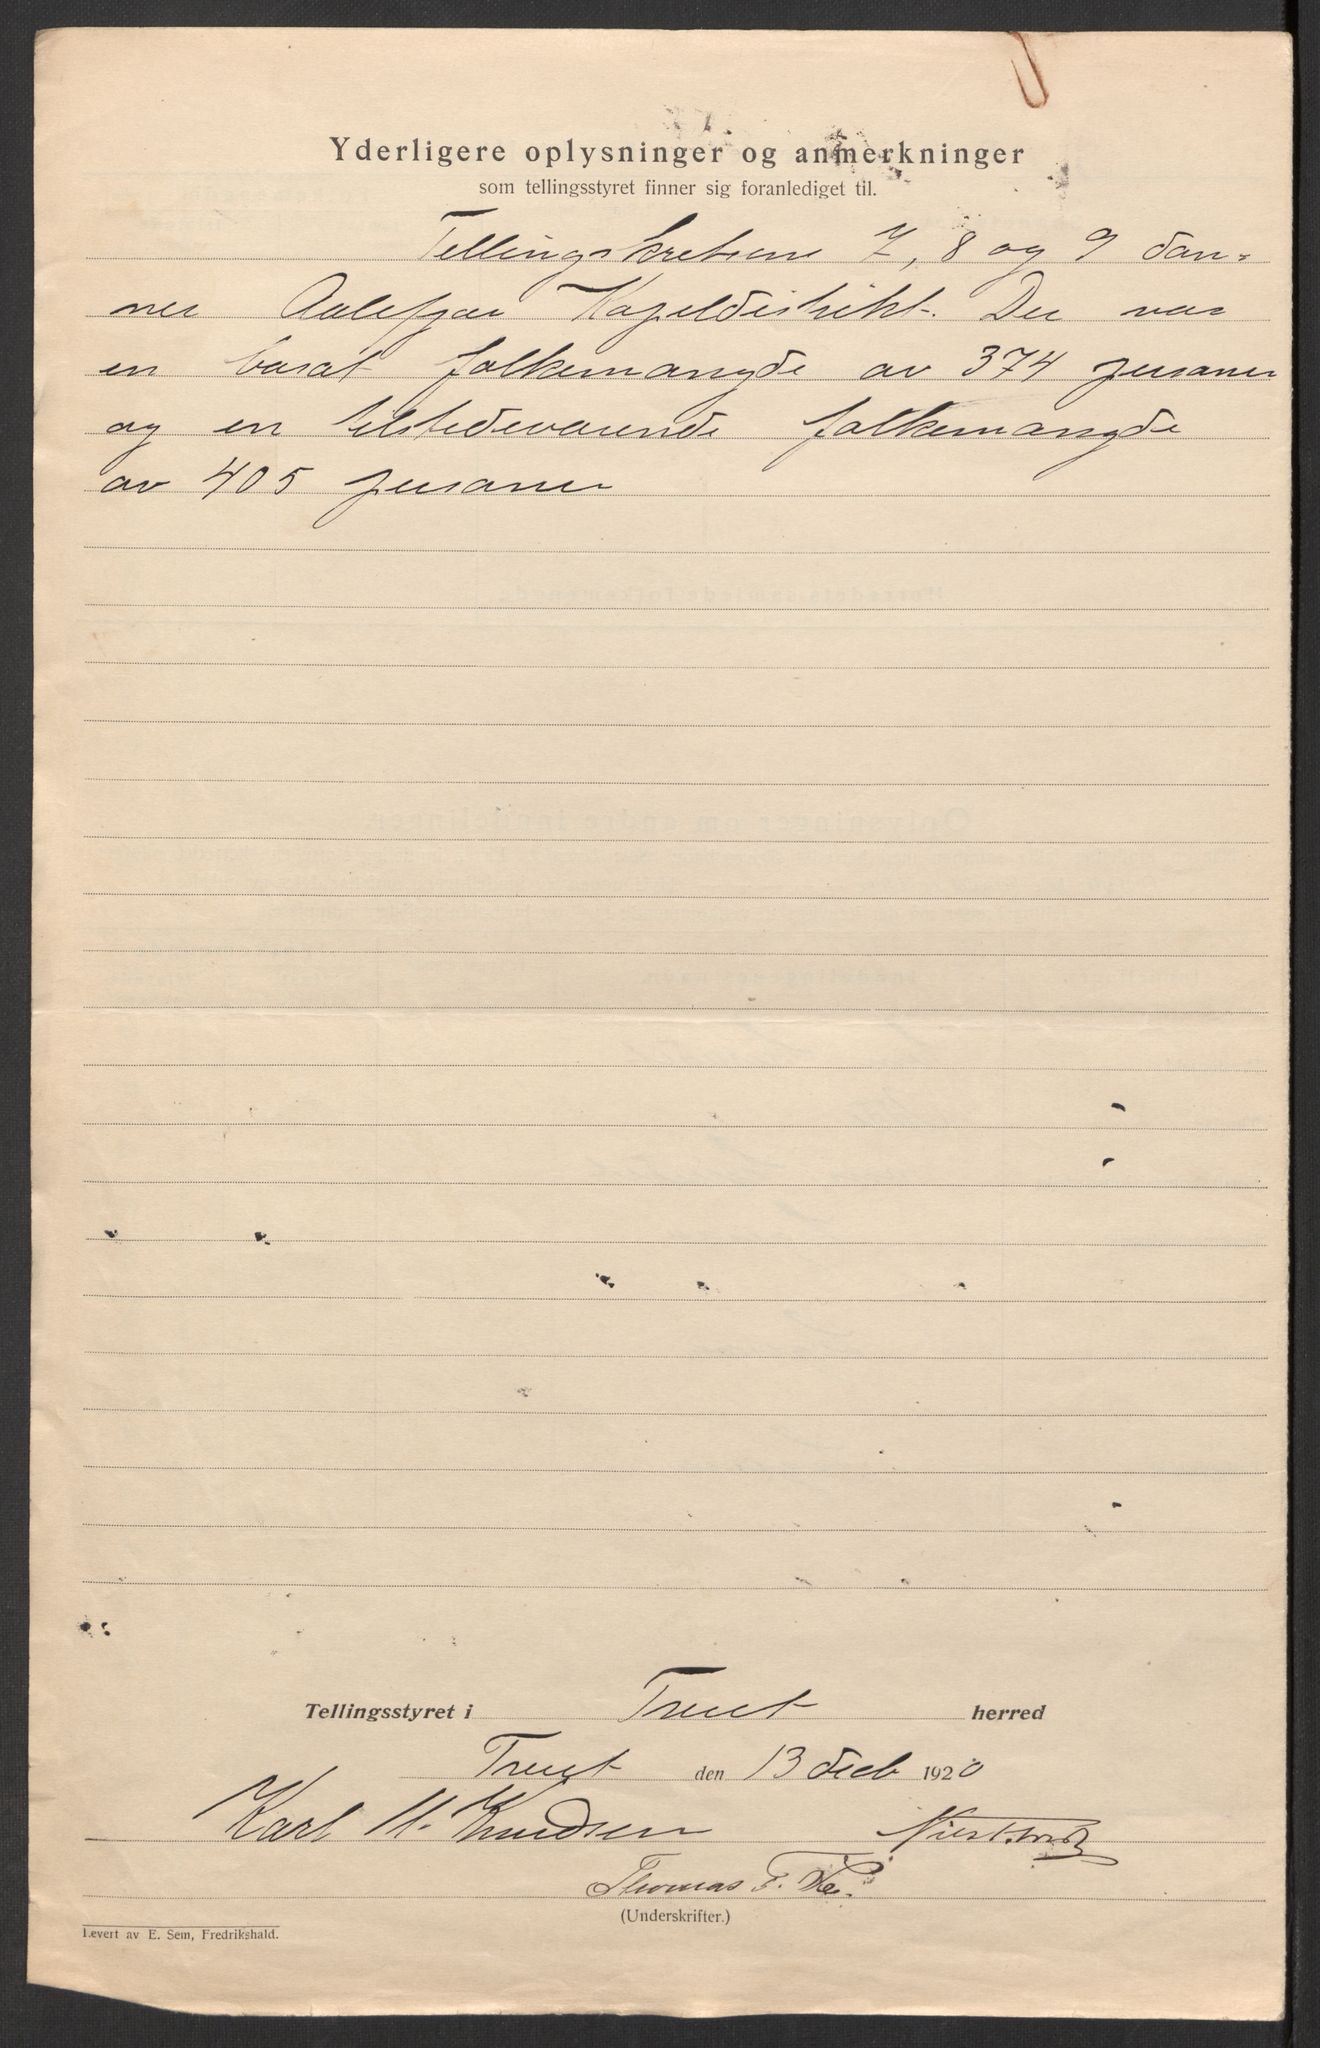 Yderligere oplysninger og anmerkninger
som tellingsstyret finner sig foranlediget til.
Tellingskretsene 7, 8 og 9 dan-
ner Aalefjær Kapeldistrikt. Der var
en bosat folkemængde av 374 personer
og en tilstedeværende folkemængde
av 405 personer
Tellingsstyret i Tveit herred
Tveit den 13 decb 1920
Karl M. Knudsen
Thomas F.
(Underskrifter.)
Levert av E. Sem, Fredrikshald.